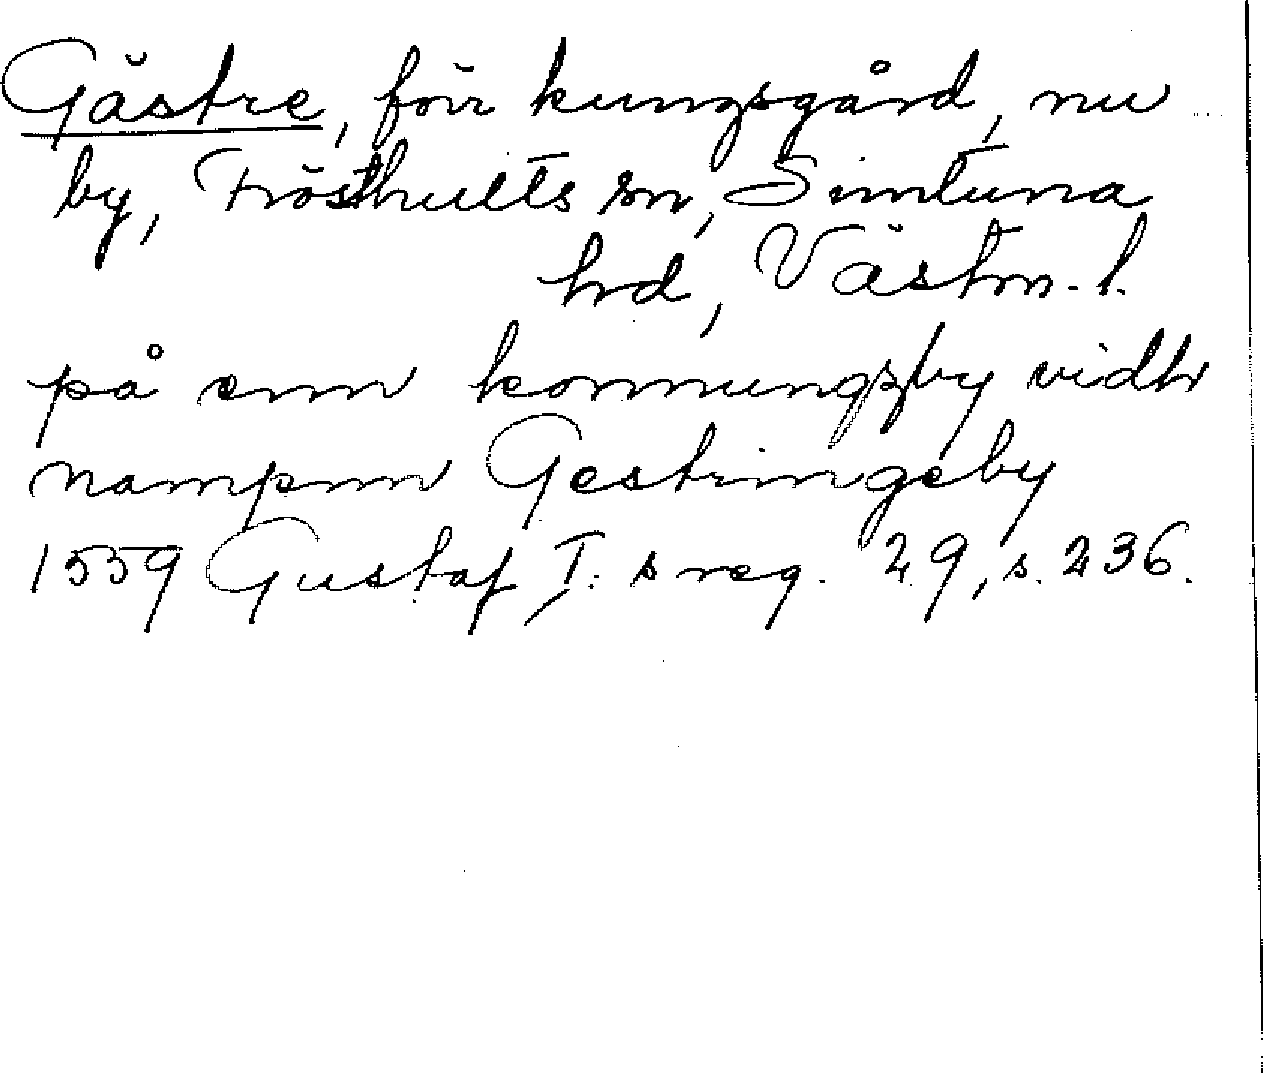 Gästre, förr kungsgård, nu
by, Frösthults sn, Simtuna
hrd, Västm. l.
på enn konnungzby vidh
nampnn Gestringeby
1559 Gustaf I:s reg. 29, s. 236.